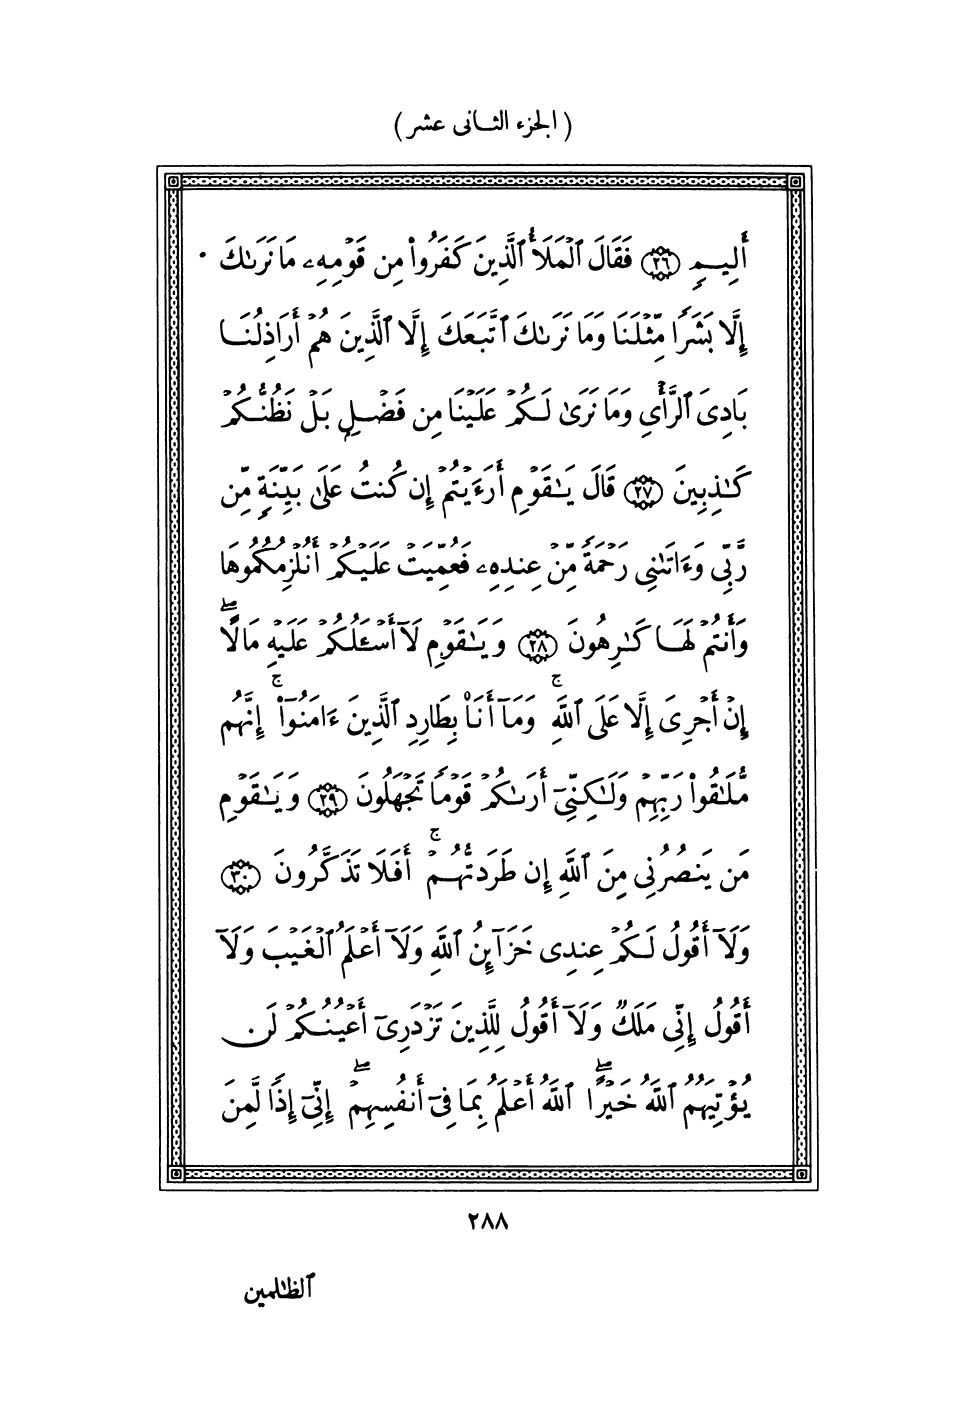 ( الجزء الثانى عشر )
أَلِيمٍ ﴿٢٦﴾ فَقَالَ ٱلْمَلَأُ ٱلَّذِينَ كَفَرُوا۟ مِن قَوْمِهِۦ مَا نَرَىٰكَ
إِلَّا بَشَرًا مِّثْلَنَا وَمَا نَرَىٰكَ ٱتَّبَعَكَ إِلَّا ٱلَّذِينَ هُمْ أَرَاذِلُنَا
بَادِىَ ٱلرَّأْىِ وَمَا نَرَىٰ لَكُمْ عَلَيْنَا مِن فَضْلٍ بَلْ نَظُنُّكُمْ
كَٰذِبِينَ ﴿٢٧﴾ قَالَ يَٰقَوْمِ أَرَءَيْتُمْ إِن كُنتُ عَلَىٰ بَيِّنَةٍ مِّن
رَّبِّى وَءَاتَىٰنِى رَحْمَةً مِّنْ عِندِهِۦ فَعُمِّيَتْ عَلَيْكُمْ أَنُلْزِمُكُمُوهَا
وَأَنتُمْ لَهَا كَٰرِهُونَ ﴿٢٨﴾ وَيَٰقَوْمِ لَآ أَسْـَٔلُكُمْ عَلَيْهِ مَالًا ۖ
إِنْ أَجْرِىَ إِلَّا عَلَى ٱللَّهِ ۚ وَمَآ أَنَا۠ بِطَارِدِ ٱلَّذِينَ ءَامَنُوٓا۟ ۚ إِنَّهُم
مُّلَٰقُوا۟ رَبِّهِمْ وَلَٰكِنِّىٓ أَرَىٰكُمْ قَوْمًا تَجْهَلُونَ ﴿٢٩﴾ وَيَٰقَوْمِ
مَن يَنصُرُنِى مِنَ ٱللَّهِ إِن طَرَدتُّهُمْ ۚ أَفَلَا تَذَكَّرُونَ ﴿٣٠﴾
وَلَآ أَقُولُ لَكُمْ عِندِى خَزَآئِنُ ٱللَّهِ وَلَآ أَعْلَمُ ٱلْغَيْبَ وَلَآ
أَقُولُ إِنِّى مَلَكٌ وَلَآ أَقُولُ لِلَّذِينَ تَزْدَرِىٓ أَعْيُنُكُمْ لَن
يُؤْتِيَهُمُ ٱللَّهُ خَيْرًا ۖ ٱللَّهُ أَعْلَمُ بِمَا فِىٓ أَنفُسِهِمْ ۖ إِنِّىٓ إِذًا لَّمِنَ
٢٨٨
ٱلظَّٰلمين